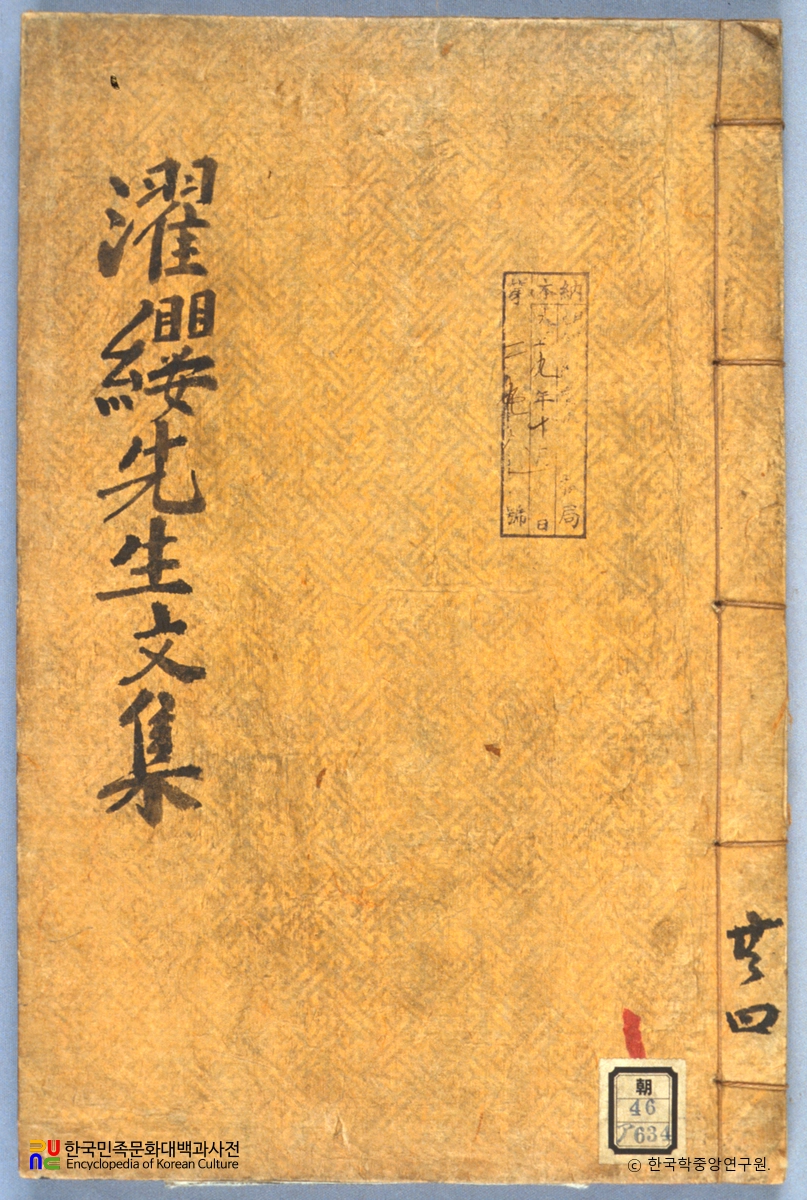 濯纓先生文集
納 局
本 九年十 日
第 號
共四
朝
46
634
한국민족문화대백과사전
Encyclopedia of Korean Culture
ⓒ 한국학중앙연구원.